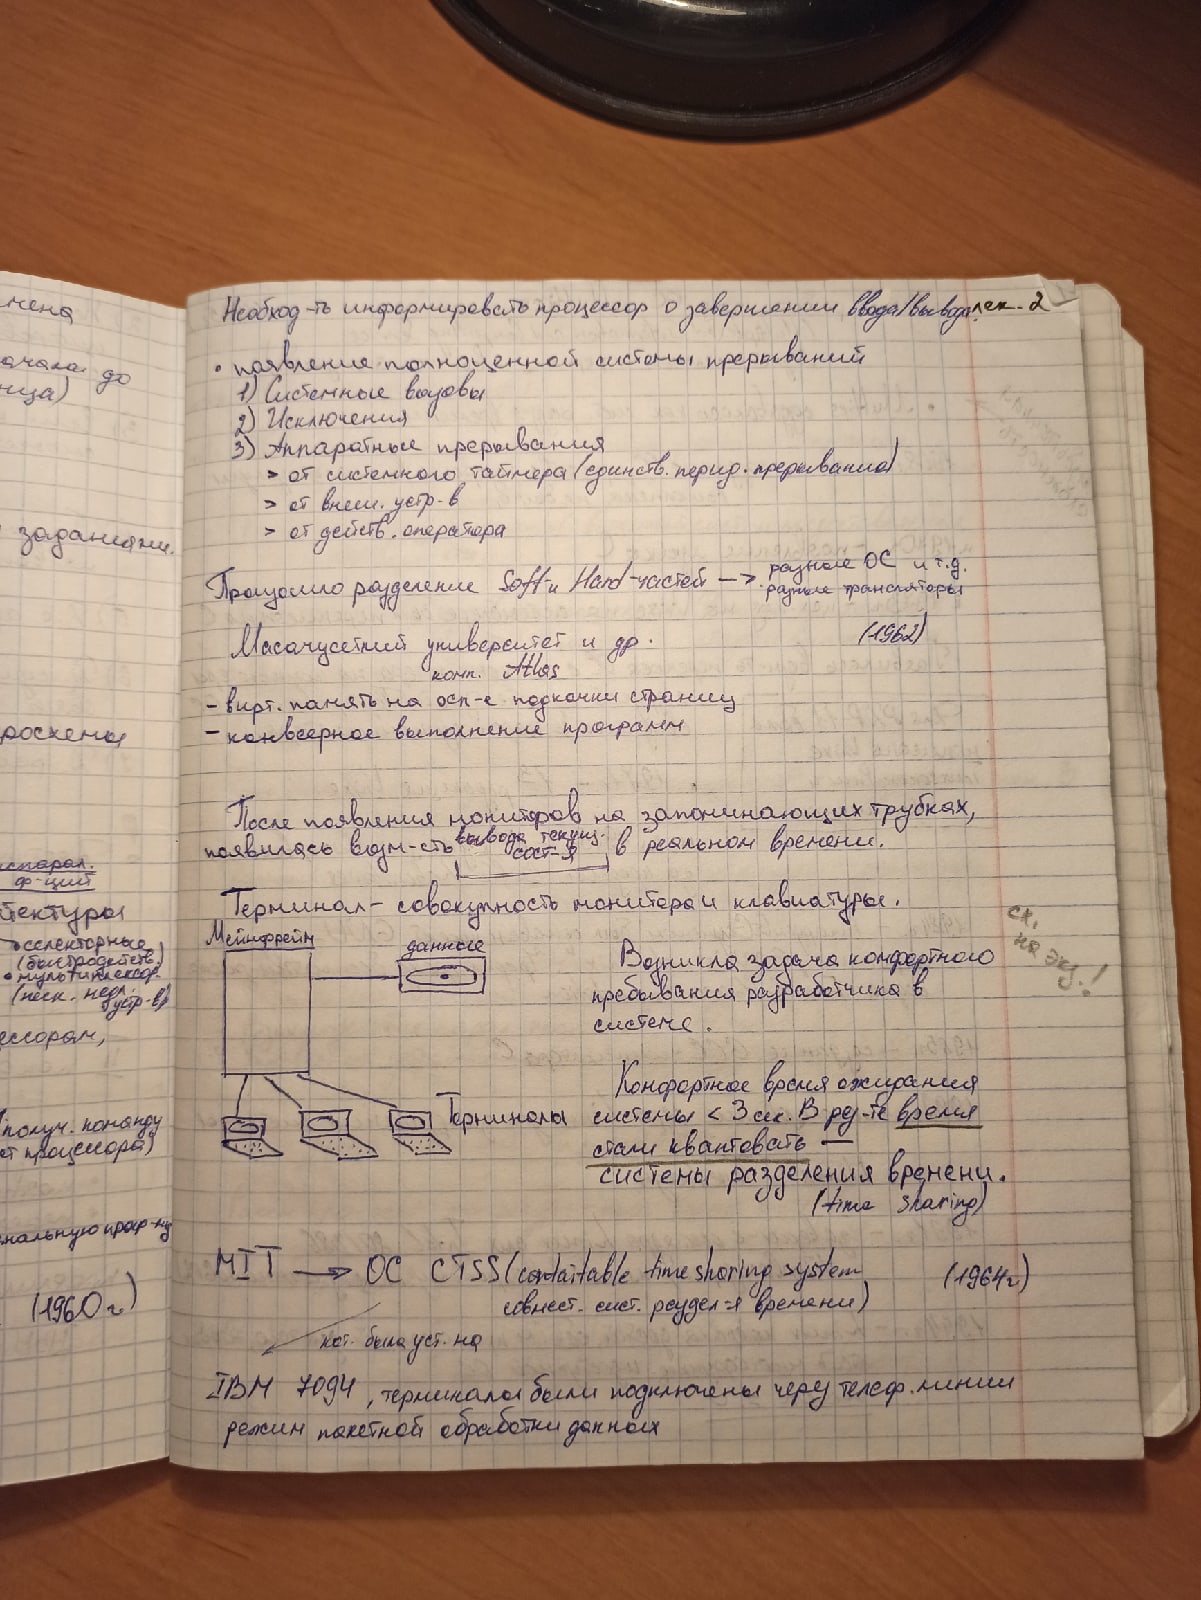 мена
ачала до
ница)
заданиями.
роскемы
испарал.
ф-ций
тектуры
селекторные
(быстродейств.)
• мультиплексор.
(неск. недл.
устр-в)
ессорам,
(получ. команду
от процессора)
мальную прогр-му
(1960г)
Необход-ть информировать процессор о завершении ввода/вывода лек. 2
• появление полноценной системы прерываний
1) Системные вызовы
2) Исключения
3) Аппаратные прерывания
> от системного таймера (единств. период. прерывание)
> от внеш. устр-в
> от действ. оператора
Произошло разделение Soft- и Hard-частей —> разные ОС и т.д.
разные трансляторы
Масачусетский университет и др. (1962)
комп. Atlas
- вирт. память на осн-е подкачки страниц
- конвеерное выполнение программ
После появления мониторов на запоминающих трубках,
появилась возм-сть вывода текущ. сост-я в реальном времени.
Терминал - совокупность монитора и клавиатуры.
Мейнфрейм
данные
Терминалы
Возникла задача комфортного
пребывания разработчика в
системе.
ск.
на экз.!
Комфортное время ожидания
системы < 3 сек. В рез-те время
стали квантовать —
системы разделения времени.
(time sharing)
MIT —> ОС CTSS (contaitable time sharing system (1964г)
совмест. сист. раздел-я времени)
кот. была уст. на
IBM 7094, терминалы были подключены через телеф. линии
режим пакетной обработки данных